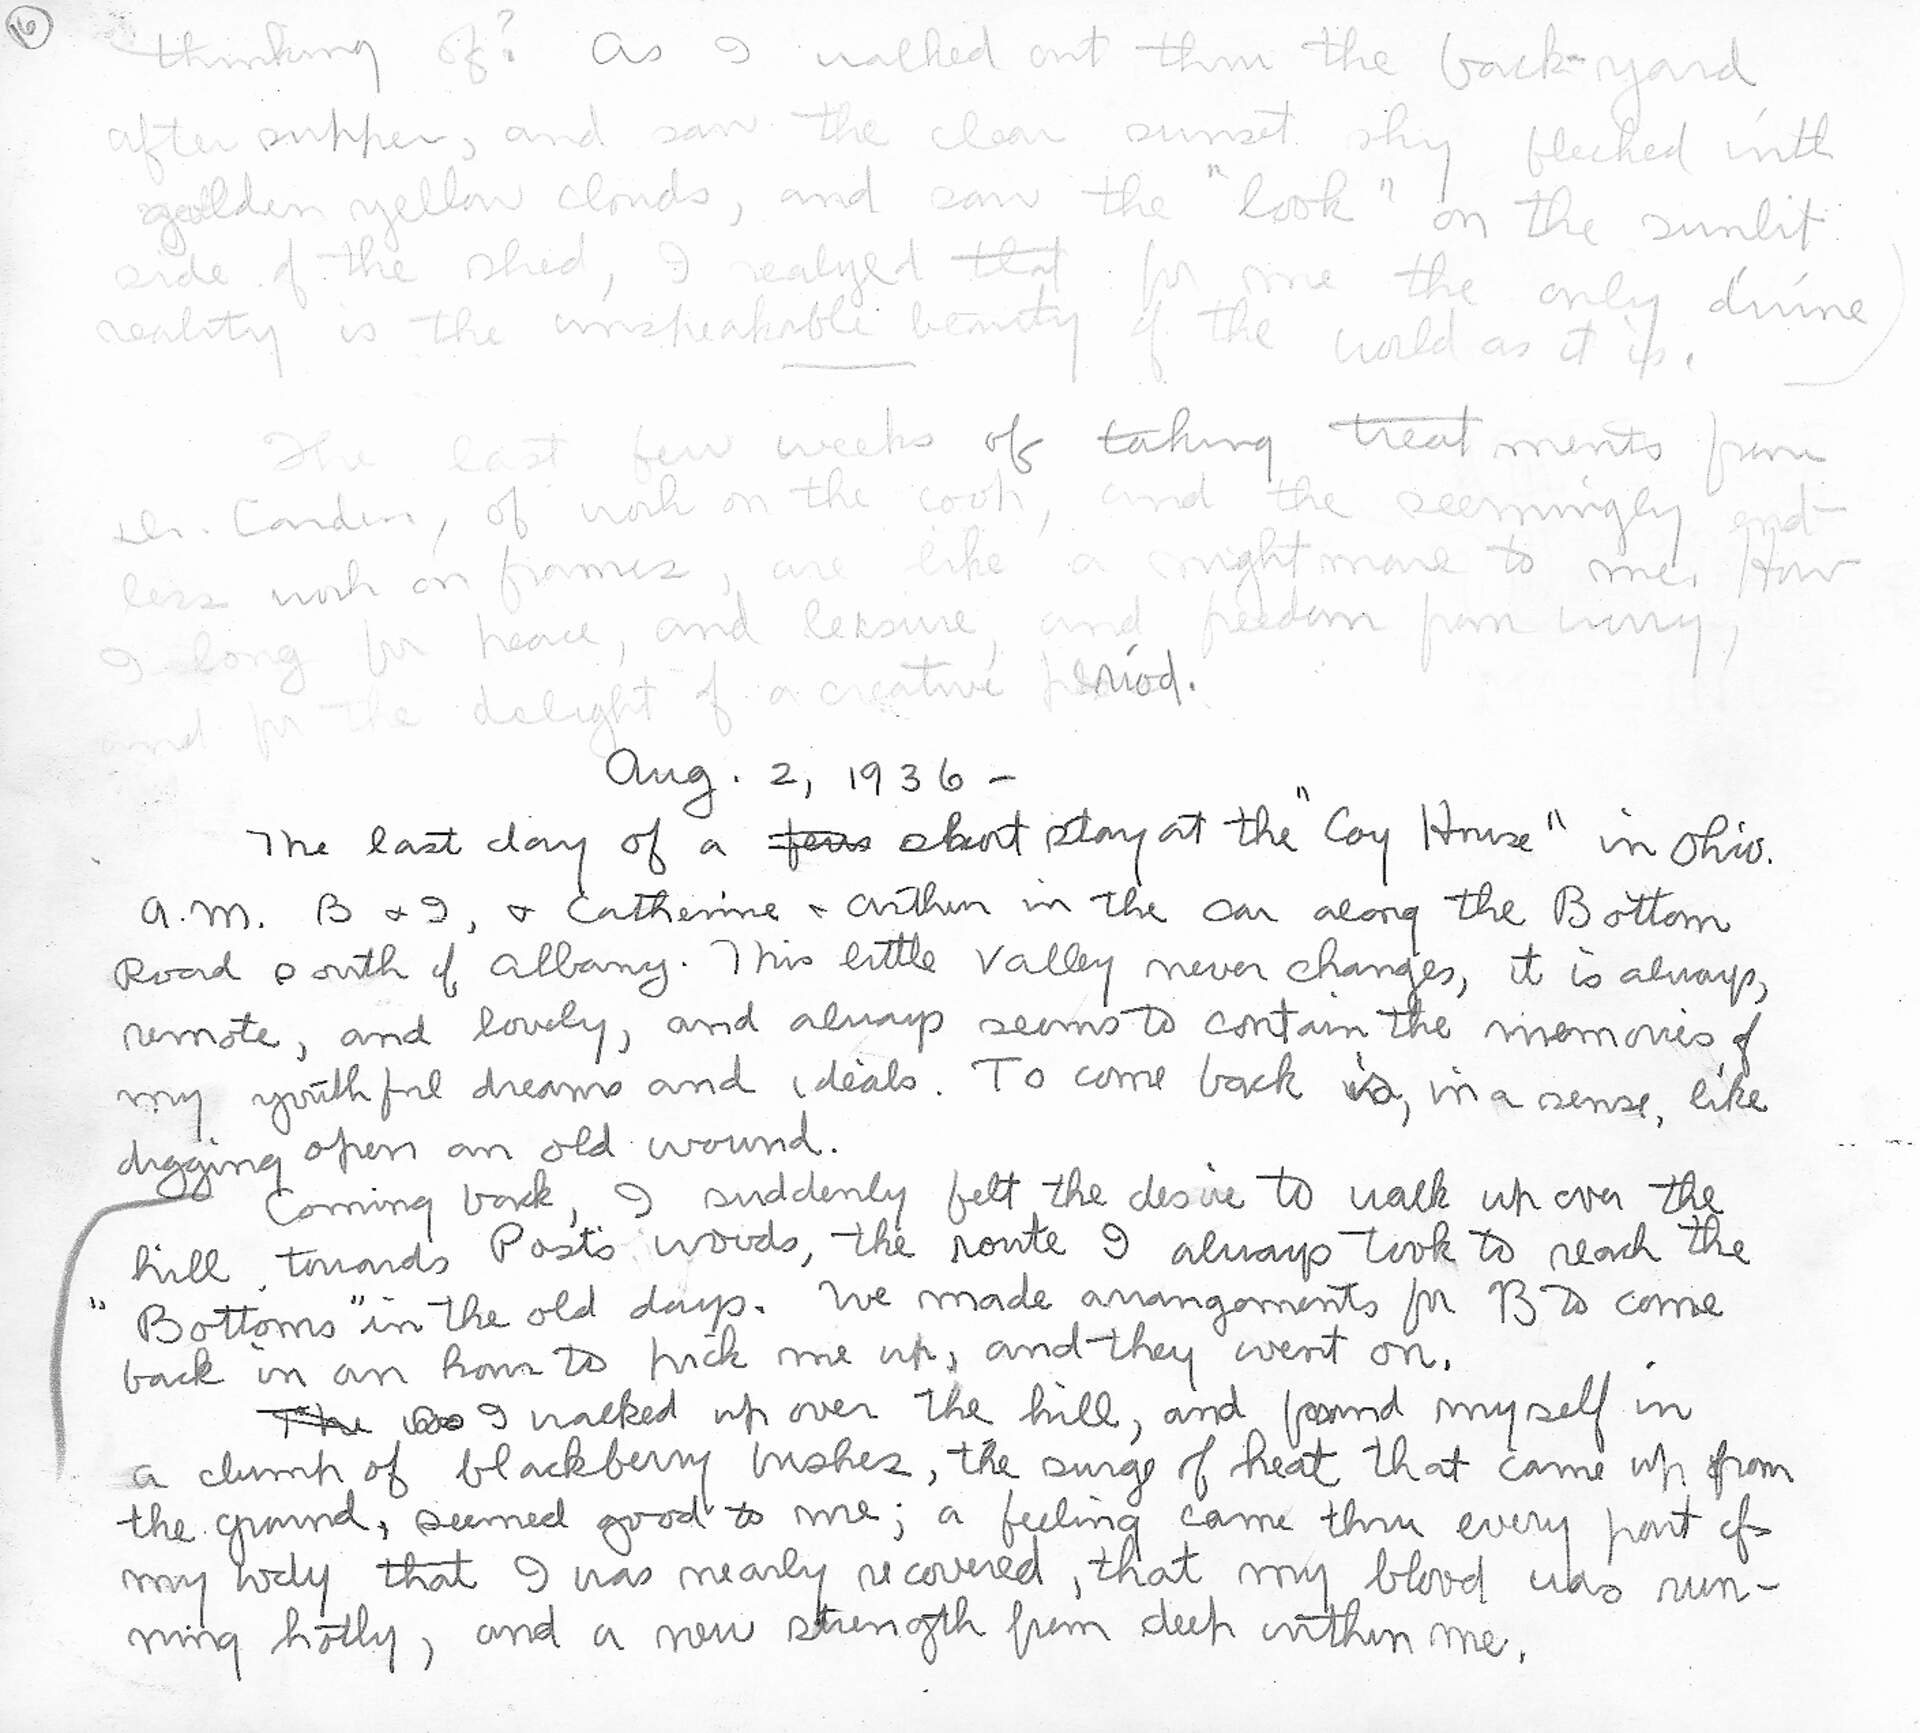 16
thinking of? As I walked out thru the back-yard
after supper, and saw the clear sunset sky flecked with
golden yellow clouds, and saw the "look" on the sunlit
side of the shed, I realyzed that for me the only divine
reality is the unspeakable beauty of the world as it is.
The last few weeks of taking treatments from
Dr. Carden, of work on the cook, and the seemingly end-
less work on frames, are like a nightmare to me. How
I long for peace, and leisure, and freedom from worry,
and for the delight of a creative period.
Aug. 2, 1936 -
The last day of a few short stay at the "Coy House" in Ohio.
A.M. B & I, & Catherine & Arthur in the car along the Bottom
Road south of Albany. This little valley never changes, it is always,
remote, and lovely, and always seems to contain the memories of
my youthful dreams and ideals. To come back is, in a sense, like
digging open an old wound.
Coming back, I suddenly felt the desire to walk up over the
hill, towards Post's woods, the route I always took to reach the
"Bottoms" in the old days. We made arrangements for B to come
back in an hour to pick me up, and they went on.
The I walked up over the hill, and found myself in
a clump of blackberry bushes, the surge of heat that came up from
the ground, seemed good to me; a feeling came thru every part of
my body that I was nearly recovered, that my blood was run-
ning hotly, and a new strength from deep within me.